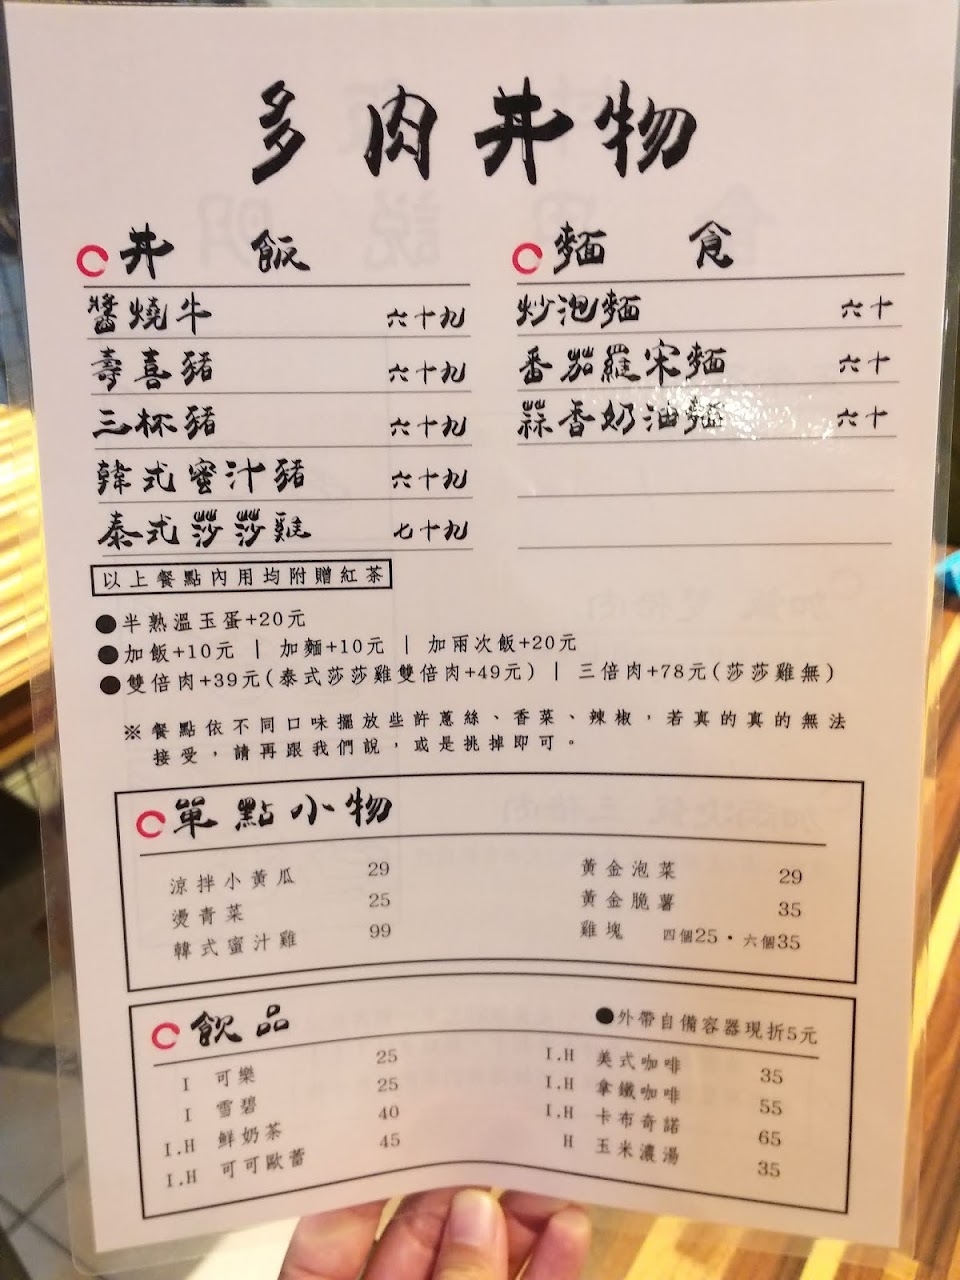 多肉丼物
丼飯
醬燒牛 六十九
壽喜豬 六十九
三杯豬 六十九
韓式蜜汁豬 六十九
泰式莎莎雞 七十九
麵食
炒泡麵 六十
番茄羅宋麵 六十
蒜香奶油麵 六十
以上餐點內用均附贈紅茶
●半熟溫玉蛋+20元
●加飯+10元 | 加麵+10元 | 加兩次飯+20元
●雙倍肉+39元(泰式莎莎雞雙倍肉+49元) | 三倍肉+78元(莎莎雞無)
※餐點依不同口味擺放些許蔥絲、香菜、辣椒,若真的真的無法
接受,請再跟我們說,或是挑掉即可。
單點小物
涼拌小黃瓜 29
燙青菜 25
韓式蜜汁雞 99
黃金泡菜 29
黃金脆薯 35
雞塊 四個25・六個35
飲品
●外帶自備容器現折5元
I 可樂 25
I 雪碧 25
I.H 鮮奶茶 40
I.H 可可歐蕾 45
I.H 美式咖啡 35
I.H 拿鐵咖啡 55
I.H 卡布奇諾 65
H 玉米濃湯 35